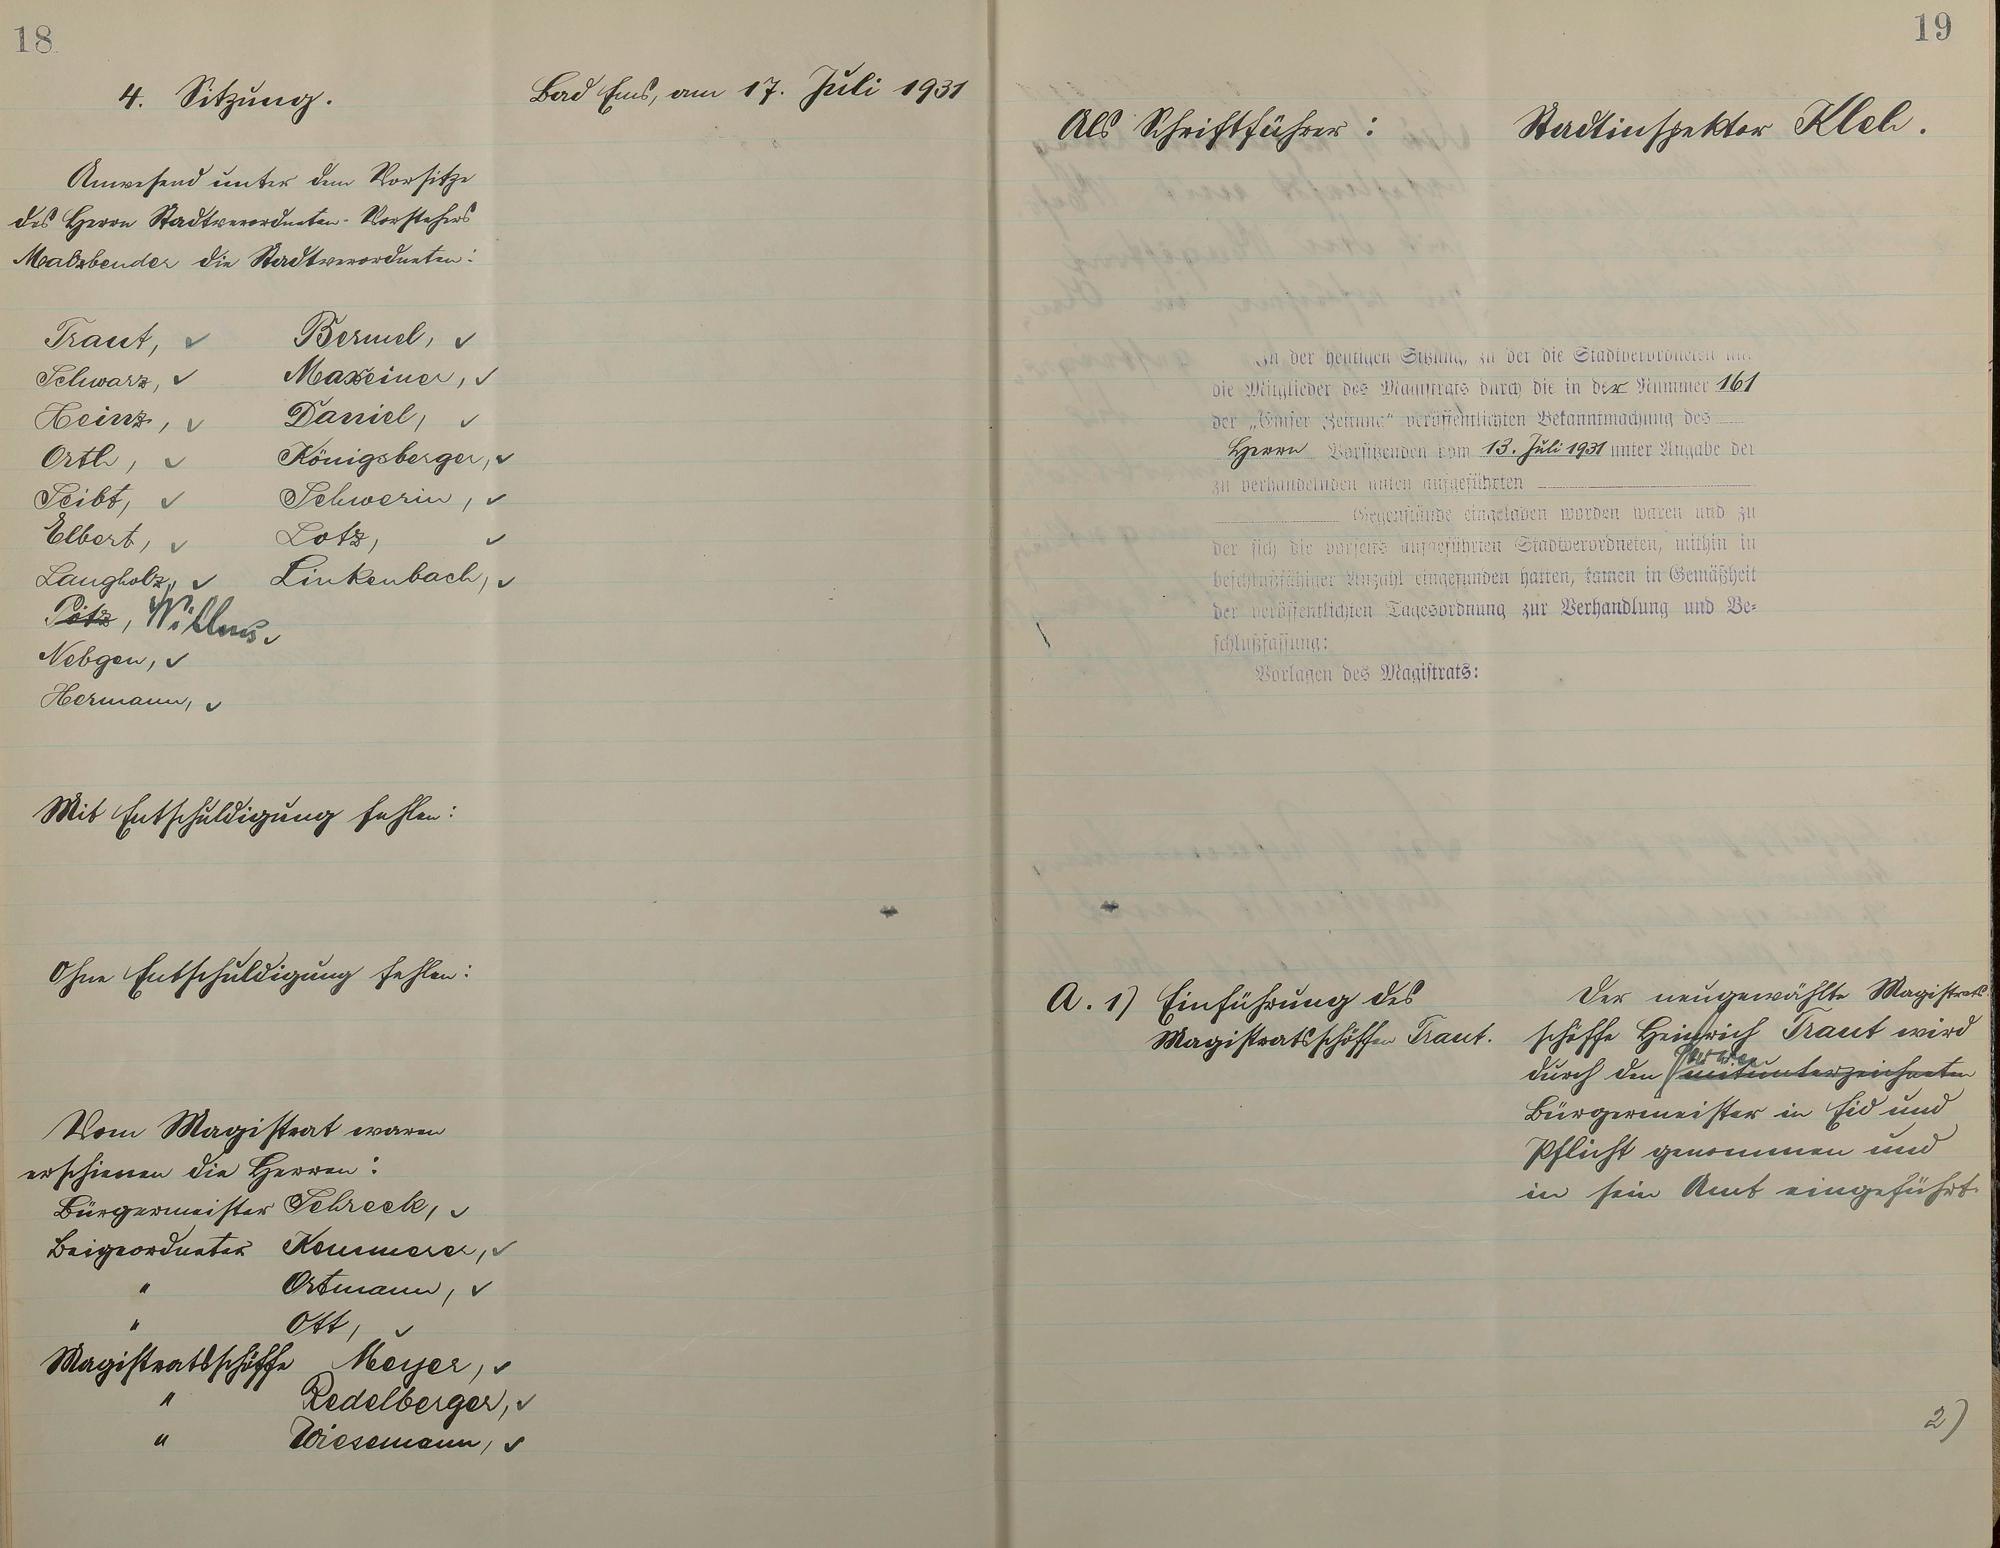 18
4. Sitzung.
Bad Ems, am 17. Juli 1931
Anwesend unter dem Vorsitze
des Herrn Stadtverordneten-Vorstehers
Malzbender die Stadtverordneten:
Traut, ✓ Bermel, ✓
Schwarz, ✓ Maxeiner, ✓
Heinz, ✓ Daniel, ✓
Orth, ✓ Königsberger, ✓
Seibt, ✓ Schwerin, ✓
Elbert, ✓ Lotz, ✓
Langholz, ✓ Linkenbach, ✓
Pötz, Willms ✓
Nebgen, ✓
Hermann, ✓
Mit Entschuldigung fehlen:
Ohne Entschuldigung fehlen:
Vom Magistrat waren
erschienen die Herren:
Bürgermeister Schreck, ✓
Beigeordneter Kemmerer, ✓
" Ortmann, ✓
" Ott, ✓
Magistratsschöffe Meyer, ✓
" Redelberger, ✓
" Wiesemann, ✓
19
Als Schriftführer: Stadtinspektor Kleh.
In der heutigen Sitzung, zu der die Stadtverordneten und
die Mitglieder des Magistrats durch die in der Nummer 161
der „Emser Zeitung“ veröffentlichten Bekanntmachung des
Herrn Vorsitzenden vom 13. Juli 1931 unter Angabe der
zu verhandelnden unten aufgeführten
Gegenstände eingeladen worden waren und zu
der sich die vorseits aufgeführten Stadtverordneten, mithin in
beschlußfähiger Anzahl eingefunden hatten, kamen in Gemäßheit
der veröffentlichten Tagesordnung zur Verhandlung und Be-
schlußfassung:
Vorlagen des Magistrats:
A. 1) Einführung des
Magistratsschöffen Traut.
Der neugewählte Magistrats-
schöffe Heinrich Traut wird
durch den Herrn mitunterzeichneten
Bürgermeister in Eid und
Pflicht genommen und
in sein Amt eingeführt.
2)